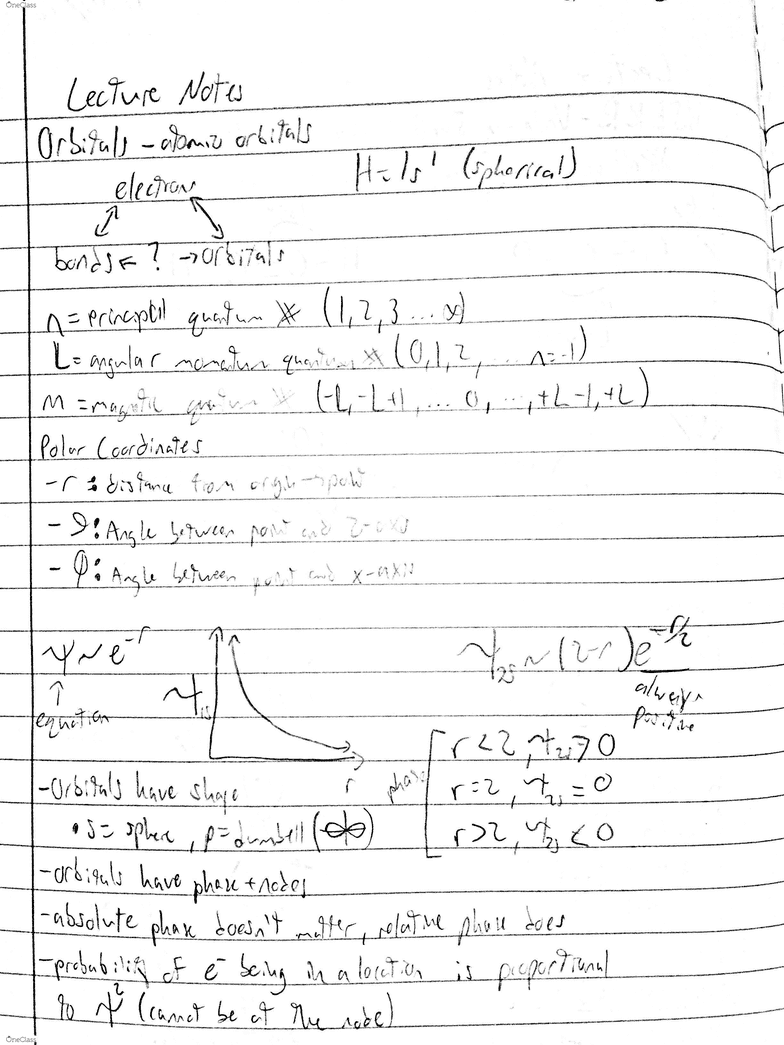 OneClass
Lecture Notes
Orbitals - atomic orbitals
H = 1s¹ (spherical)
electrons
bonds ← ? → orbitals
n = principal quantum # (1, 2, 3 ... ∞)
L = angular momentum quantum # (0, 1, 2, ... n=-1)
m = magnetic quantum # (-L, -L+1, ... 0, ..., +L-1, +L)
Polar Coordinates
- r : distance from origin → point
- θ: Angle between point and z-axis
- φ: Angle between point and x-axis
ψ ~ e^-r
↑
equation
ψ1s
r
ψ2s ~ (2-r) e^-r/2
always
positive
phase
r < 2, ψ2s > 0
r = 2, ψ2s = 0
r > 2, ψ2s < 0
- Orbitals have shape
• s = sphere, p = dumbell
- orbitals have phase + nodes
- absolute phase doesn't matter, relative phase does
- probability of e⁻ being in a location is proportional
to ψ² (cannot be at the node)
OneClass